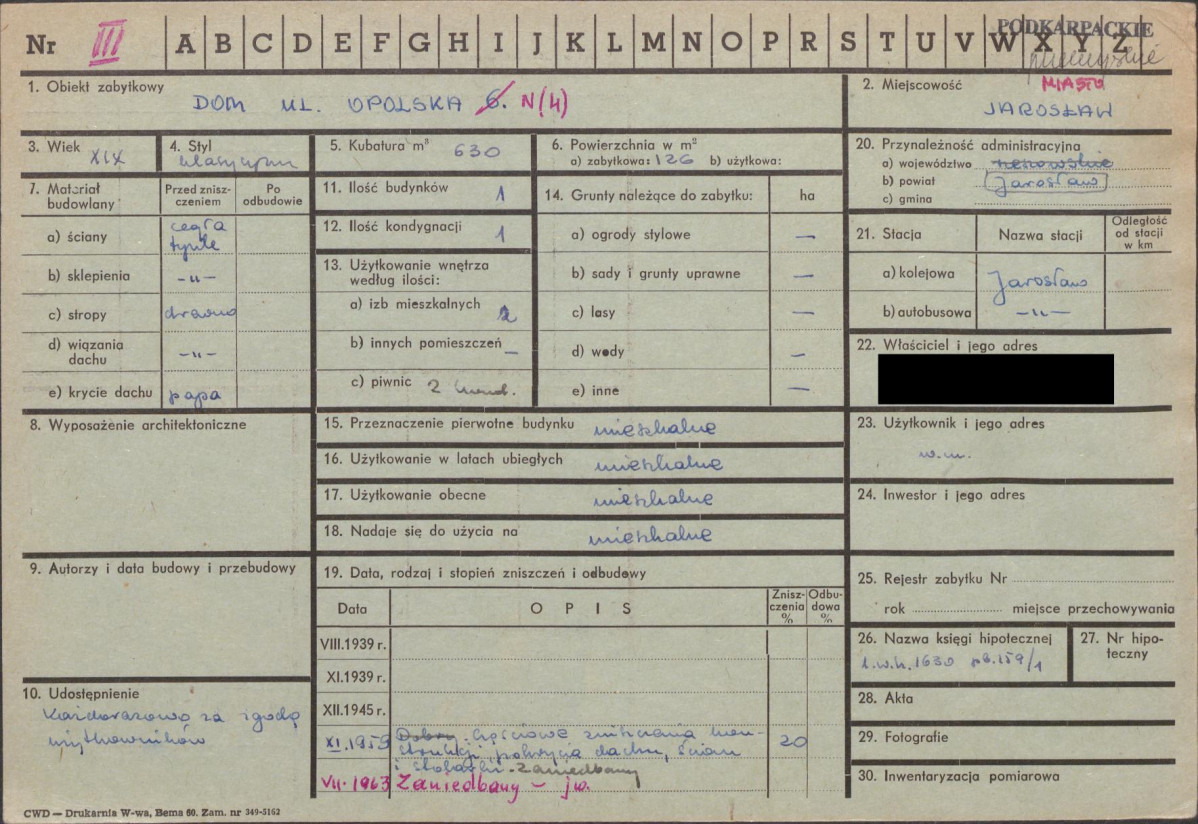 Nr III A B C D E F G H I J K L M N O P R S T U V W X Y Z
PODKARPACKIE
przemyskie
1. Obiekt zabytkowy
DOM UL. OPOLSKA 6. N(4)
2. Miejscowość
MIASTO
JAROSŁAW
3. Wiek XIX
4. Styl
klasycyzm
5. Kubatura m³ 630
6. Powierzchnia w m²
a) zabytkowa: 126 b) użytkowa:
7. Materiał budowlany
Przed znisz-
czeniem
Po
odbudowie
a) ściany cegła
tynk
b) sklepienia -„-
c) stropy drewno
d) wiązania
dachu -„-
e) krycie dachu papa
8. Wyposażenie architektoniczne
9. Autorzy i data budowy i przebudowy
10. Udostępnienie
Każdorazowo za zgodą
użytkowników
11. Ilość budynków 1
12. Ilość kondygnacji 1
13. Użytkowanie wnętrza
według ilości:
a) izb mieszkalnych 2
b) innych pomieszczeń —
c) piwnic 2
14. Grunty należące do zabytku: ha
a) ogrody stylowe —
b) sady i grunty uprawne —
c) lasy —
d) wody —
e) inne —
15. Przeznaczenie pierwotne budynku mieszkalne
16. Użytkowanie w latach ubiegłych mieszkalne
17. Użytkowanie obecne mieszkalne
18. Nadaje się do użycia na mieszkalne
19. Data, rodzaj i stopień zniszczeń i odbudowy
Data OPIS Znisz-
czenia
%
Odbu-
dowa
%
VIII.1939 r.
XI.1939 r.
XII.1945 r.
XI.1959 Dobry częściowe zniszczenia kon- 20
strukcji, pokrycia dachu, ścian
i stolarki - zaniedbany
VII.1963 Zaniedbany – jw.
20. Przynależność administracyjna
a) województwo rzeszowskie
b) powiat Jarosław
c) gmina
21. Stacja
Nazwa stacji
Odległość
od stacji
w km
a) kolejowa Jarosław
b) autobusowa -„-
22. Właściciel i jego adres
23. Użytkownik i jego adres
w.m.
24. Inwestor i jego adres
25. Rejestr zabytku Nr
rok miejsce przechowywania
26. Nazwa księgi hipotecznej
l.w.h. 1630 pb. 159/1
27. Nr hipo-
teczny
28. Akta
29. Fotografie
30. Inwentaryzacja pomiarowa
CWD — Drukarnia W-wa, Bema 60. Zam. nr 349-5162